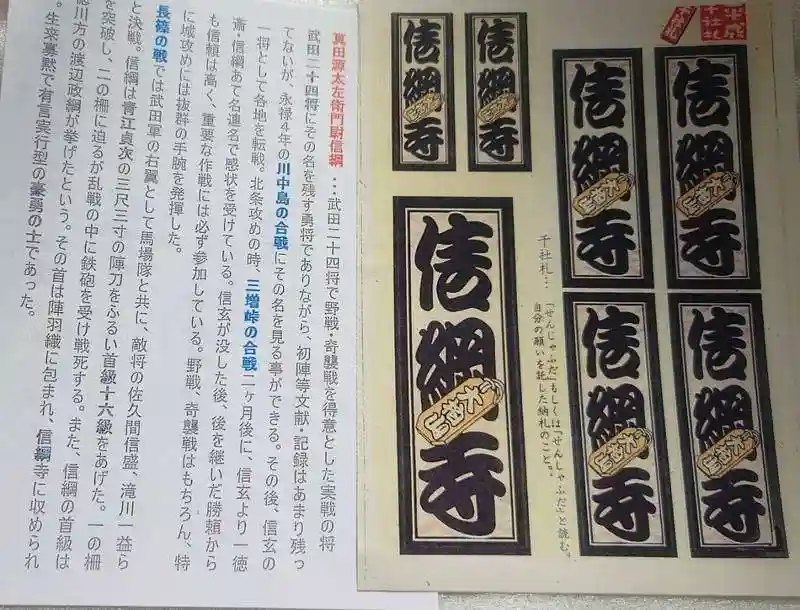 千社札
千社札
信綱寺
大柏山
信綱寺
大柏山
信綱寺
大柏山
信綱寺
大柏山
千社札…
「せんじゃふだ」もしくは「せんしゃふだ」と読む。
自分の願いを託した納札のこと。
信綱寺
大柏山
信綱寺
大柏山
信綱寺
大柏山
真田源太左衛門尉信綱…武田二十四将で野戦・奇襲戦を得意とした実戦の将
武田二十四将にその名を残す勇将でありながら、初陣等文献・記録はあまり残っ
てないが、永禄４年の川中島の合戦にその名を見る事ができる。その後、信玄の
一将として各地を転戦。北条攻めの時、三増峠の合戦二ヶ月後に、信玄より一徳
斎・信綱あて名連名で感状を受けている。信玄が没した後、後を継いだ勝頼から
も信頼は高く、重要な作戦には必ず参加している。野戦、奇襲戦はもちろん、特
に城攻めには抜群の手腕を発揮した。
長篠の戦では武田軍の右翼として馬場隊と共に、敵将の佐久間信盛、滝川一益ら
と決戦。信綱は青江貞次の三尺三寸の陣刀をふるい首級十六級をあげた。一の柵
を突破し、二の柵に迫るが乱戦の中に鉄砲を受け戦死する。また、信綱の首級は
川方の渡辺政綱が挙げたという。その首は陣羽織に包まれ、信綱寺に収められ
。生来寡黙で有言実行型の豪勇の士であった。